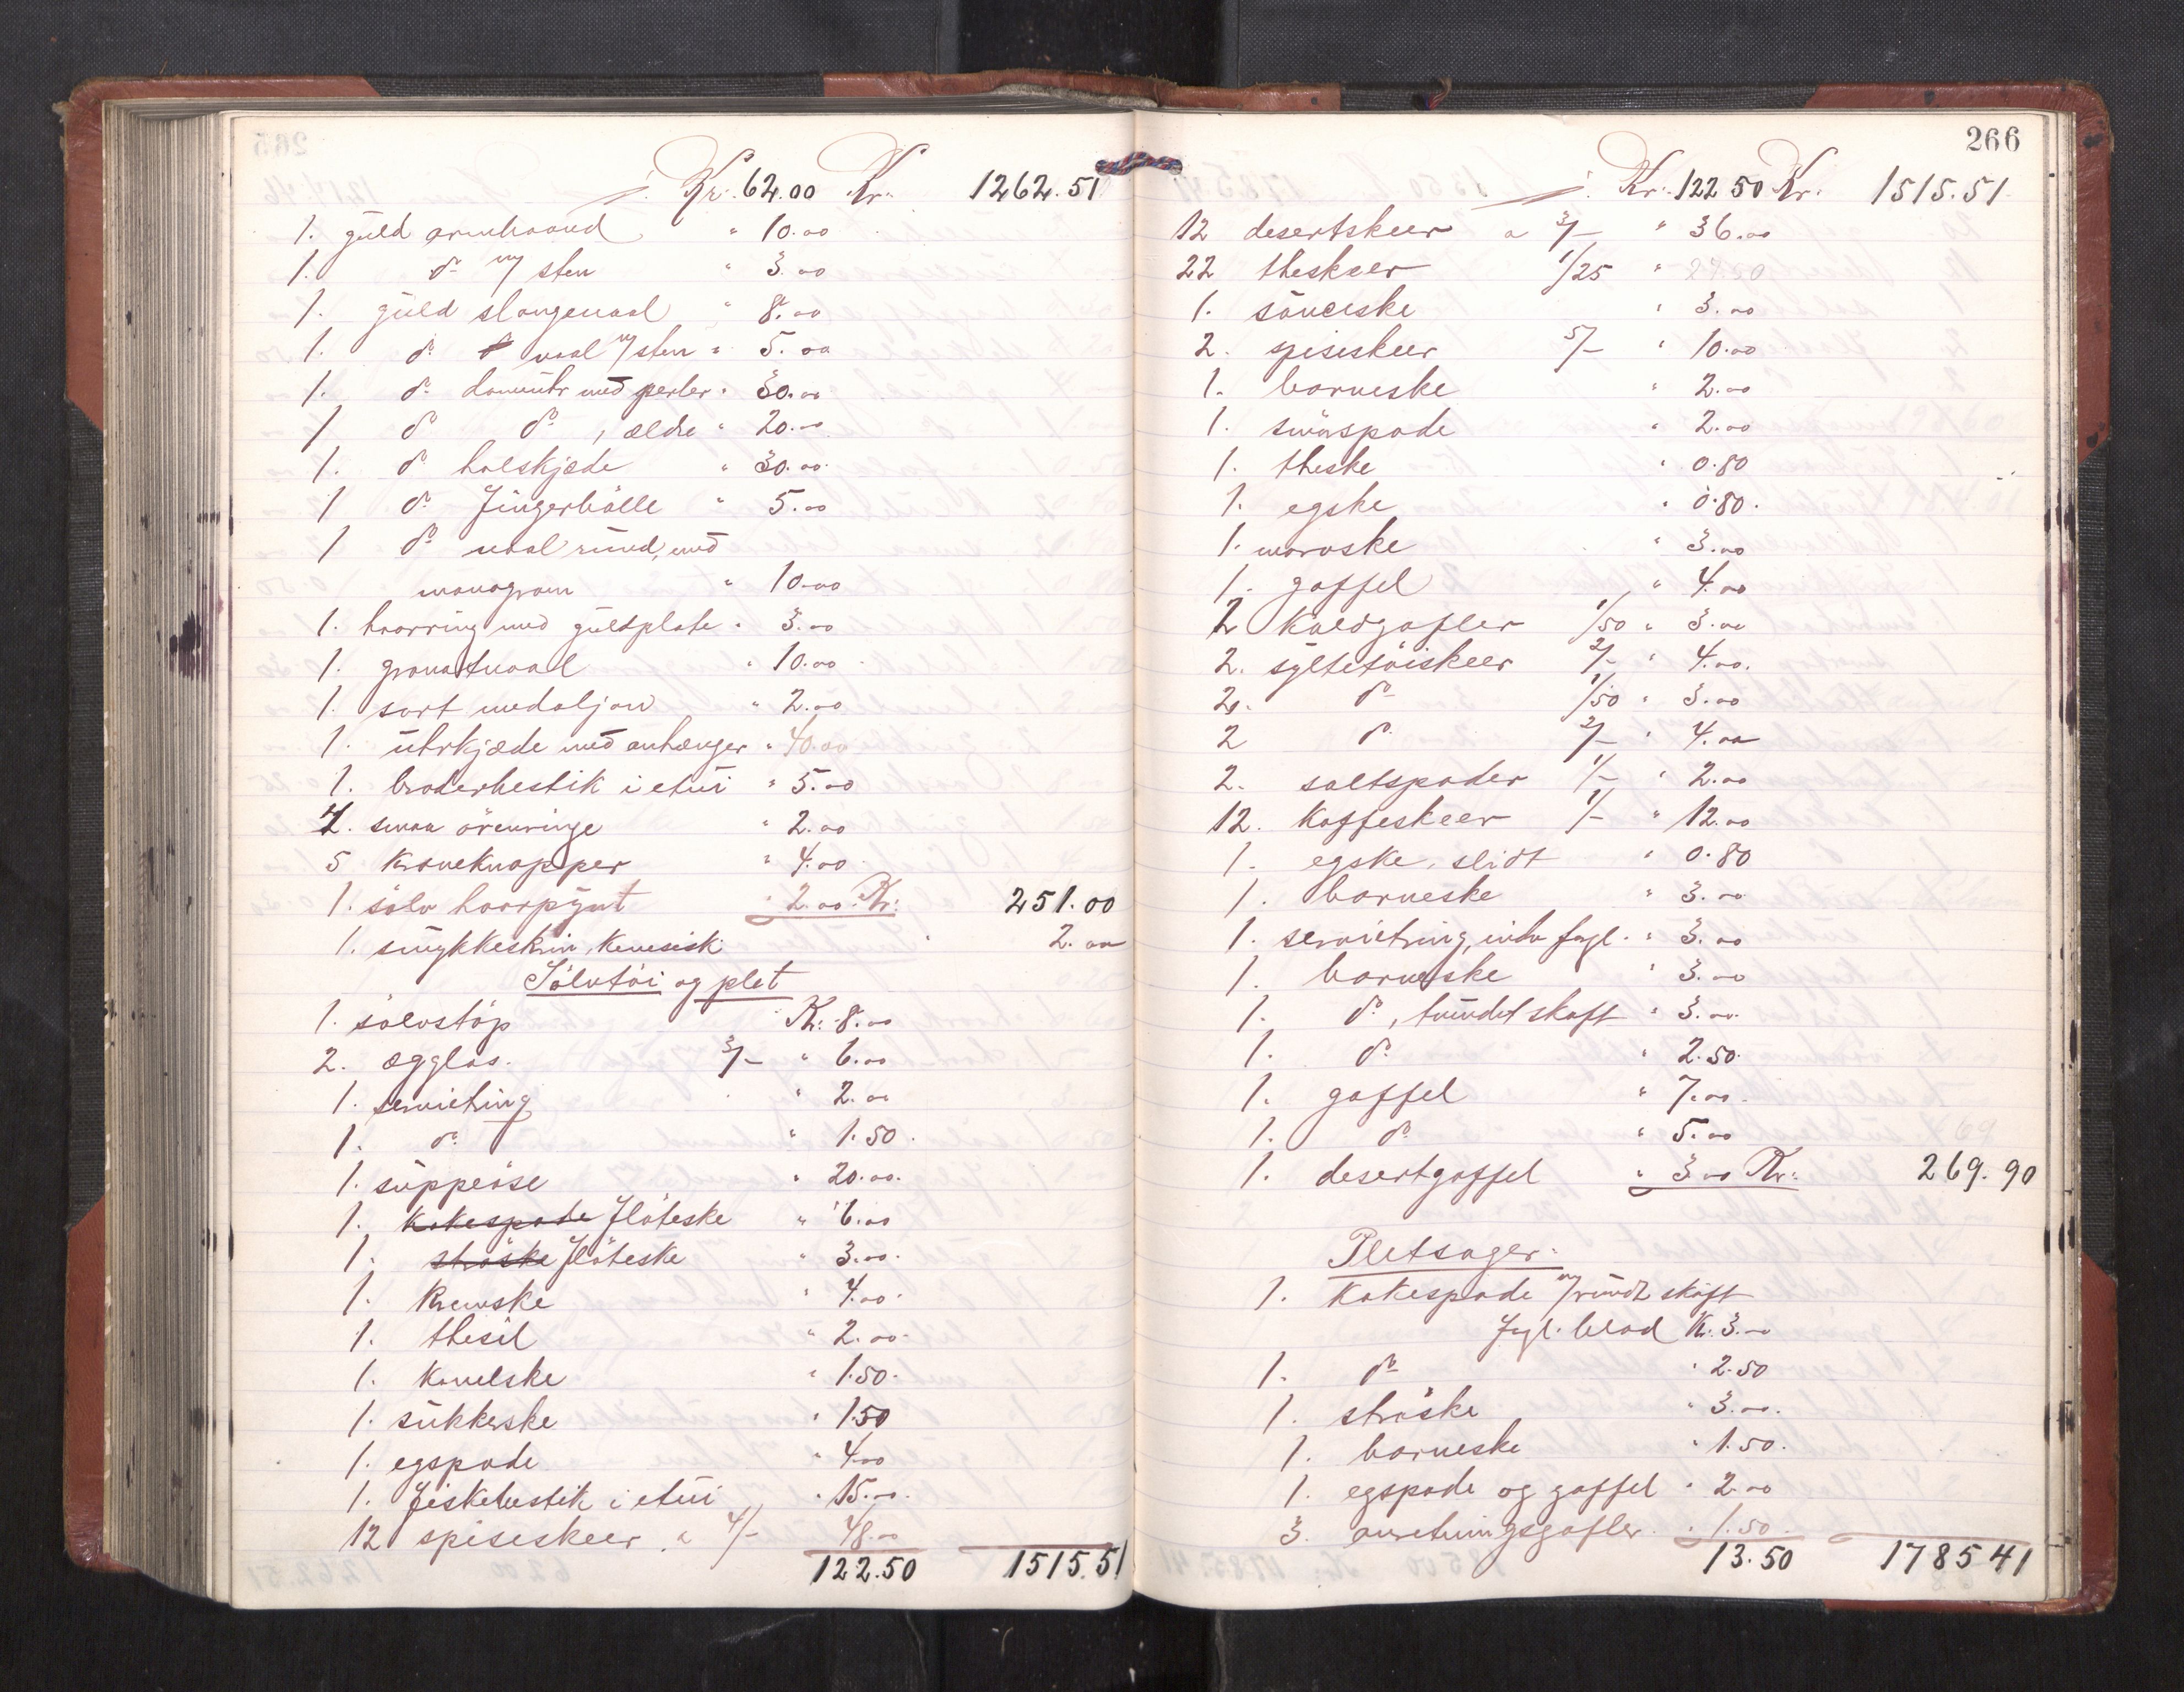 Kr. 62.00 Kr. 1262.51
1. guld armbaand " 10.00
1. do m/ sten " 3.00
1. guld slangenaal " 8.00
1. do naal m/ sten " 5.00
1. do dameuhr med perler " 30.00
1 do do, ældre " 20.00
1. do halskjæde " 30.00
1 do fingerbölle " 5.00
1 do naal rund, med
monogram " 10.00
1. haarring med guldplate " 3.00
1. granatnaal " 10.00
1. sort medaljon " 2.00
1. uhrkjæde med anhænger " 40.00
1. broderbestik i etui " 5.00
2. smaa örenringe " 2.00
5 kraveknapper " 4.00
1. sölv haarpynt " 2.00 Kr: 251.00
1. smykkeskrin, kinesisk " 2.00
Sölvtöi og plet
1. sölvstöp Kr: 8.00
2. egglas. 3/- " 6.00
1. servietring " 2.00
1. do " 1.50
1. suppeöse " 20.00
1. kakespade flöteske " 6.00
1. ströske flöteske " 3.00
1. Kremske " 4.00
1. thesil " 2.00
1. Kanelske " 1.50
1. sukkerske " 1.50
1. egspade " 4.00
1. fiskebestik i etui " 15.00
12 spiseskeer a 4/- 48.00
122.50 1515.51
266
Kr. 122 50 Kr. 1515.51
12 desertskeer a 3/- " 36.00
22 theskeer 1/25 " 27.50
1. sauceske " 3.00
2. spiseskeer 5/- " 10.00
1. barneske " 2.00
1. smörspade " 2.00
1. theske " 0.80
1. egske " 0.80
1. marvske " 3.00
1. gaffel " 4.00
2 Koldgafler 1/50 " 3.00
2. syltetöiskeer 2/- " 4.00
2. do 1/50 " 3.00
2 do 2/- " 4.00
2. saltspader 1/- " 2.00
12. Kaffeskeer 1/- " 12.00
1. egske, slidt " 0.80
1. barneske " 3.00
1. serviettring, indv. fogl. " 3.00
1. barneske " 3.00
1. do, tvundet skaft " 3.00
1. do " 2.50
1. gaffel " 7.00
1. do " 5.00
1. desertgaffel " 3.00 Kr: 269.90
Pletsager.
1. Kakespade m/rundt skaft
fogl. blad Kr. 3.00
1. do " 2.50
1. ströske " 3.00
1. barneske " 1.50
1. egspade og gaffel " 2.00
3. anretningsgafler " 1.50
13.50 1785 41